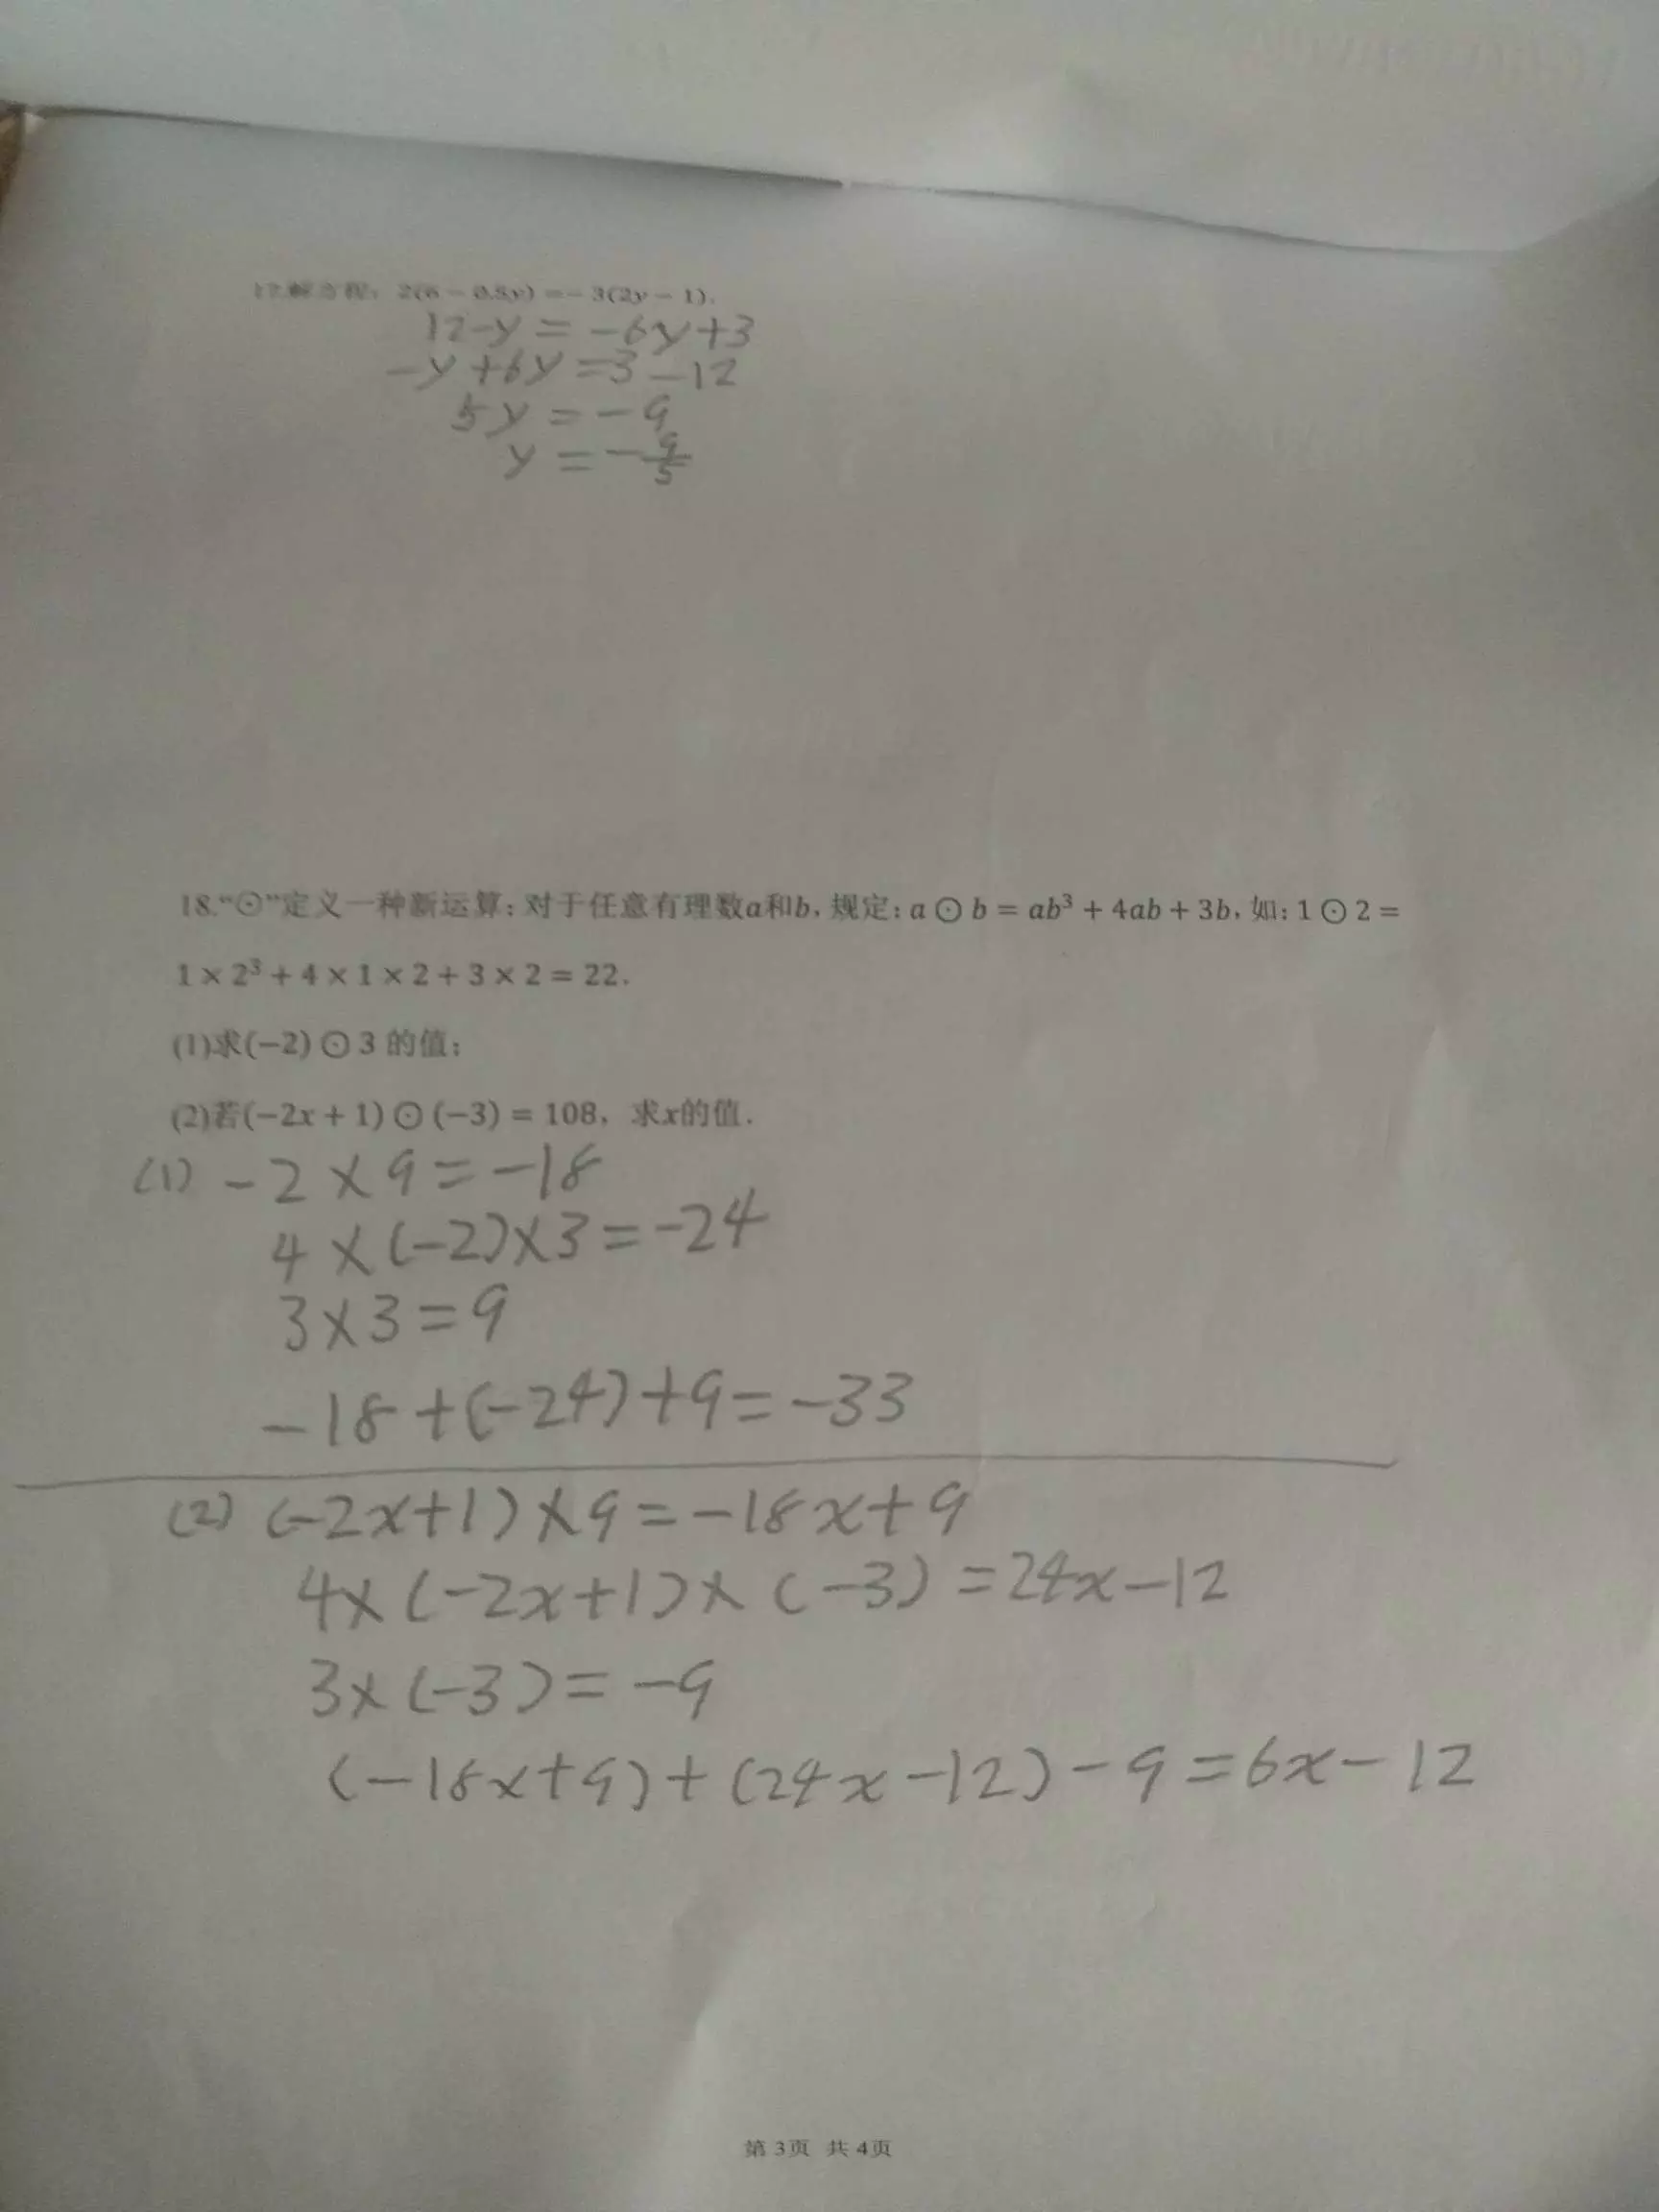 17.解方程：2(6－0.5y)＝－3(2y－1).
12-y=-6y+3
-y+6y=3-12
5y=-9
y=-9/5
18.“⊙”定义一种新运算：对于任意有理数a和b，规定：a⊙b=ab³+4ab+3b，如：1⊙2=
1×2³+4×1×2+3×2=22.
(1)求(−2)⊙3 的值；
(2)若(−2x+1)⊙(−3)=108，求x的值.
(1) -2×9=-18
4×(-2)×3=-24
3×3=9
-18+(-24)+9=-33
(2) (-2x+1)×9=-18x+9
4×(-2x+1)×(-3)=24x-12
3×(-3)=-9
(-18x+9)+(24x-12)-9=6x-12
第 3页 共 4页